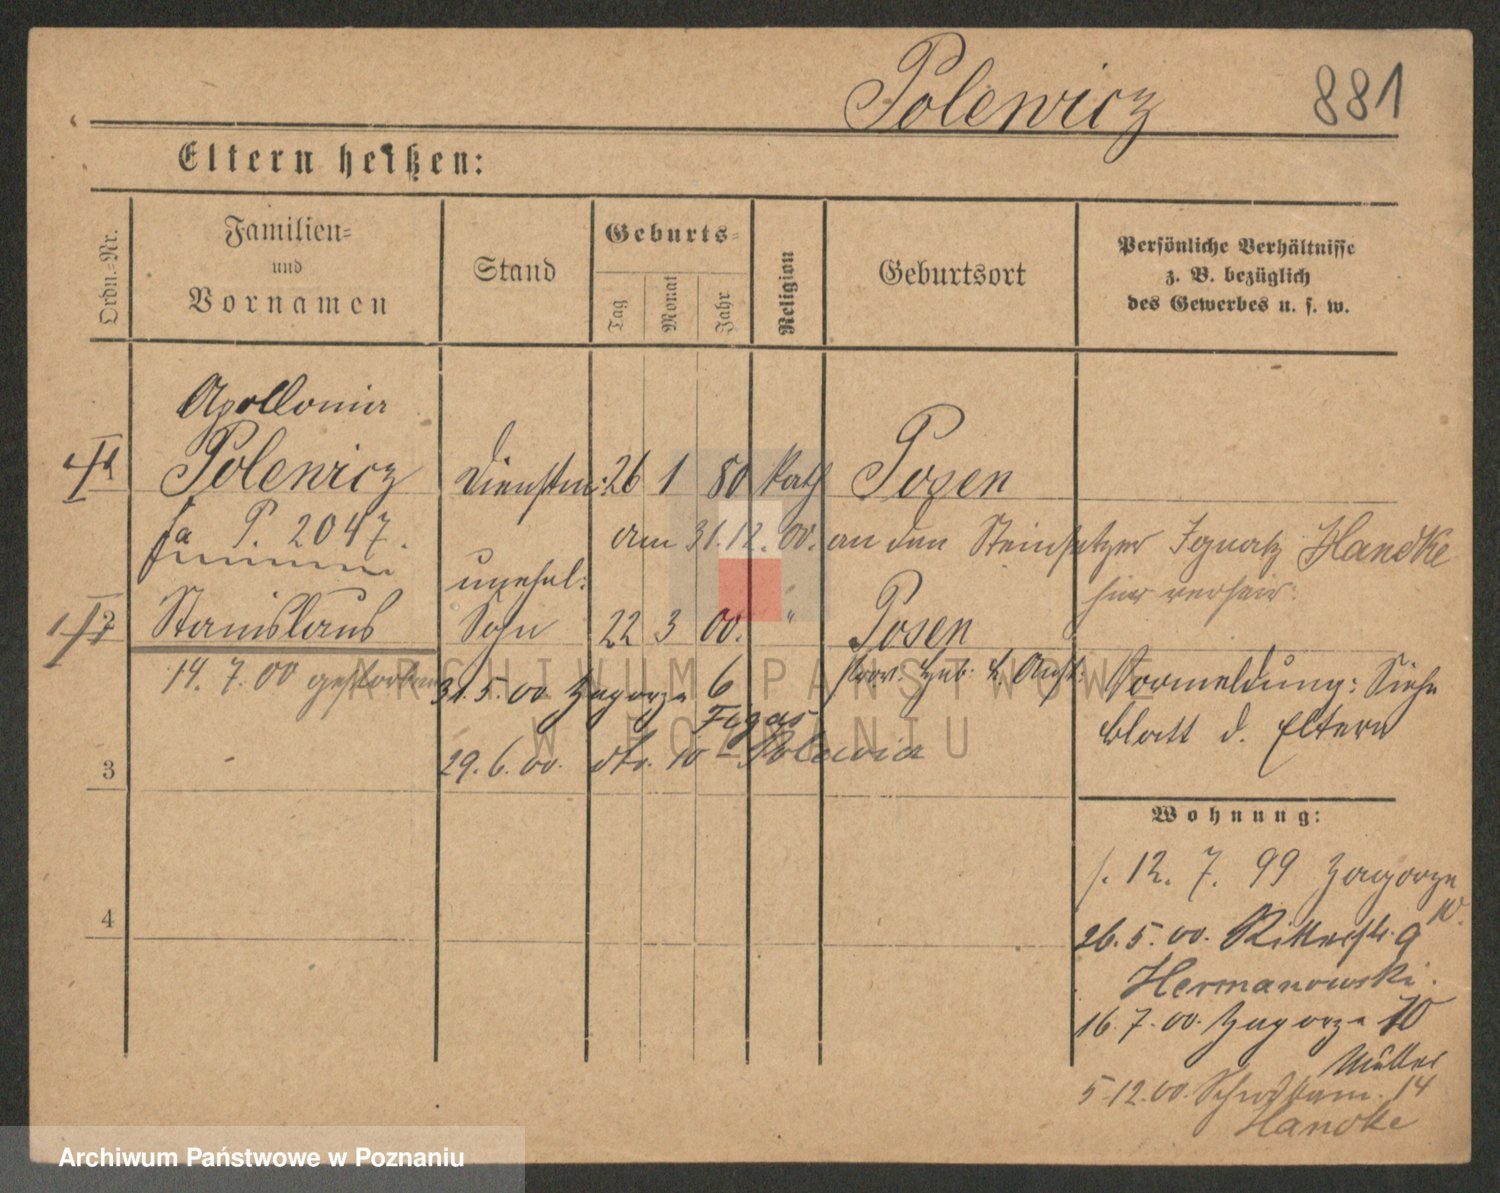 Polewicz 881
Eltern heißen:
Ordn.-Nr.
Familien-
und
Vornamen
Stand
Geburts-
Tag
Monat
Jahr
Religion
Geburtsort
Persönliche Verhältnisse
z. B. bezüglich
des Gewerbes u. s. w.
Apollonia
1 Polewicz Dienstm: 26 1 80 kath Posen
fa P. 2047.
am 31.12.00. an den Steinsetzer Ignatz Handke
hier verheir:
unehel:
2 Stanislaus Sohn 22 3 00. " Posen
14. 7. 00 gestorben
Prov. Heb. L. Anst:
31.5.00 Zagorze 6
29.6.00. dto. 10 Polewicz
Vormeldung: Siehe
Blatt d. Eltern
3
Wohnung:
12. 7. 99 Zagorze
10.
4
26. 5. 00. Ritterstr. 9
Hermanowski.
16. 7. 00. Zagorze 10
Müller
5.12.00. 14
Handke
ARCHIWUM PAŃSTWOWE
W POZNANIU
Archiwum Państwowe w Poznaniu